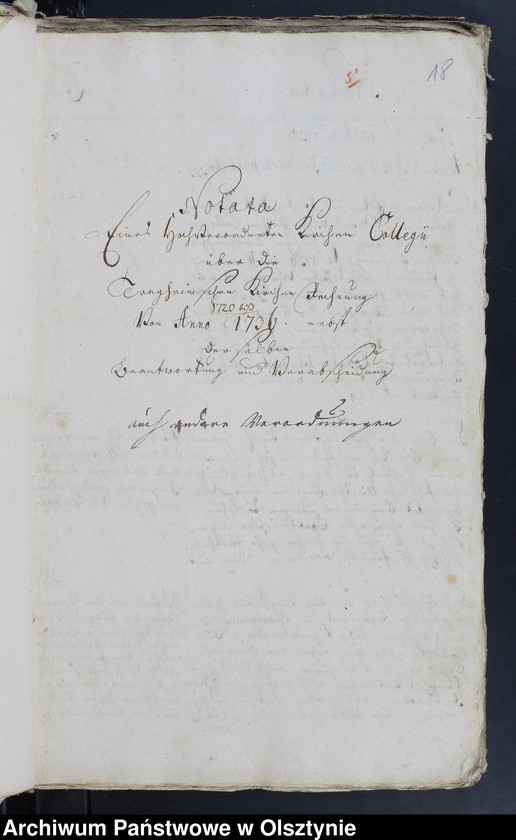 5
18
Notata
Eines Hochverordneten Kirchen Collegii
über die
Tragheimschen Kirchen Rechnung
1720 bis
Von Anno 1736. nebst
derselben
Beantwortung und Verabscheidung
auch andere Verordnungen
Archiwum Państwowe w Olsztynie